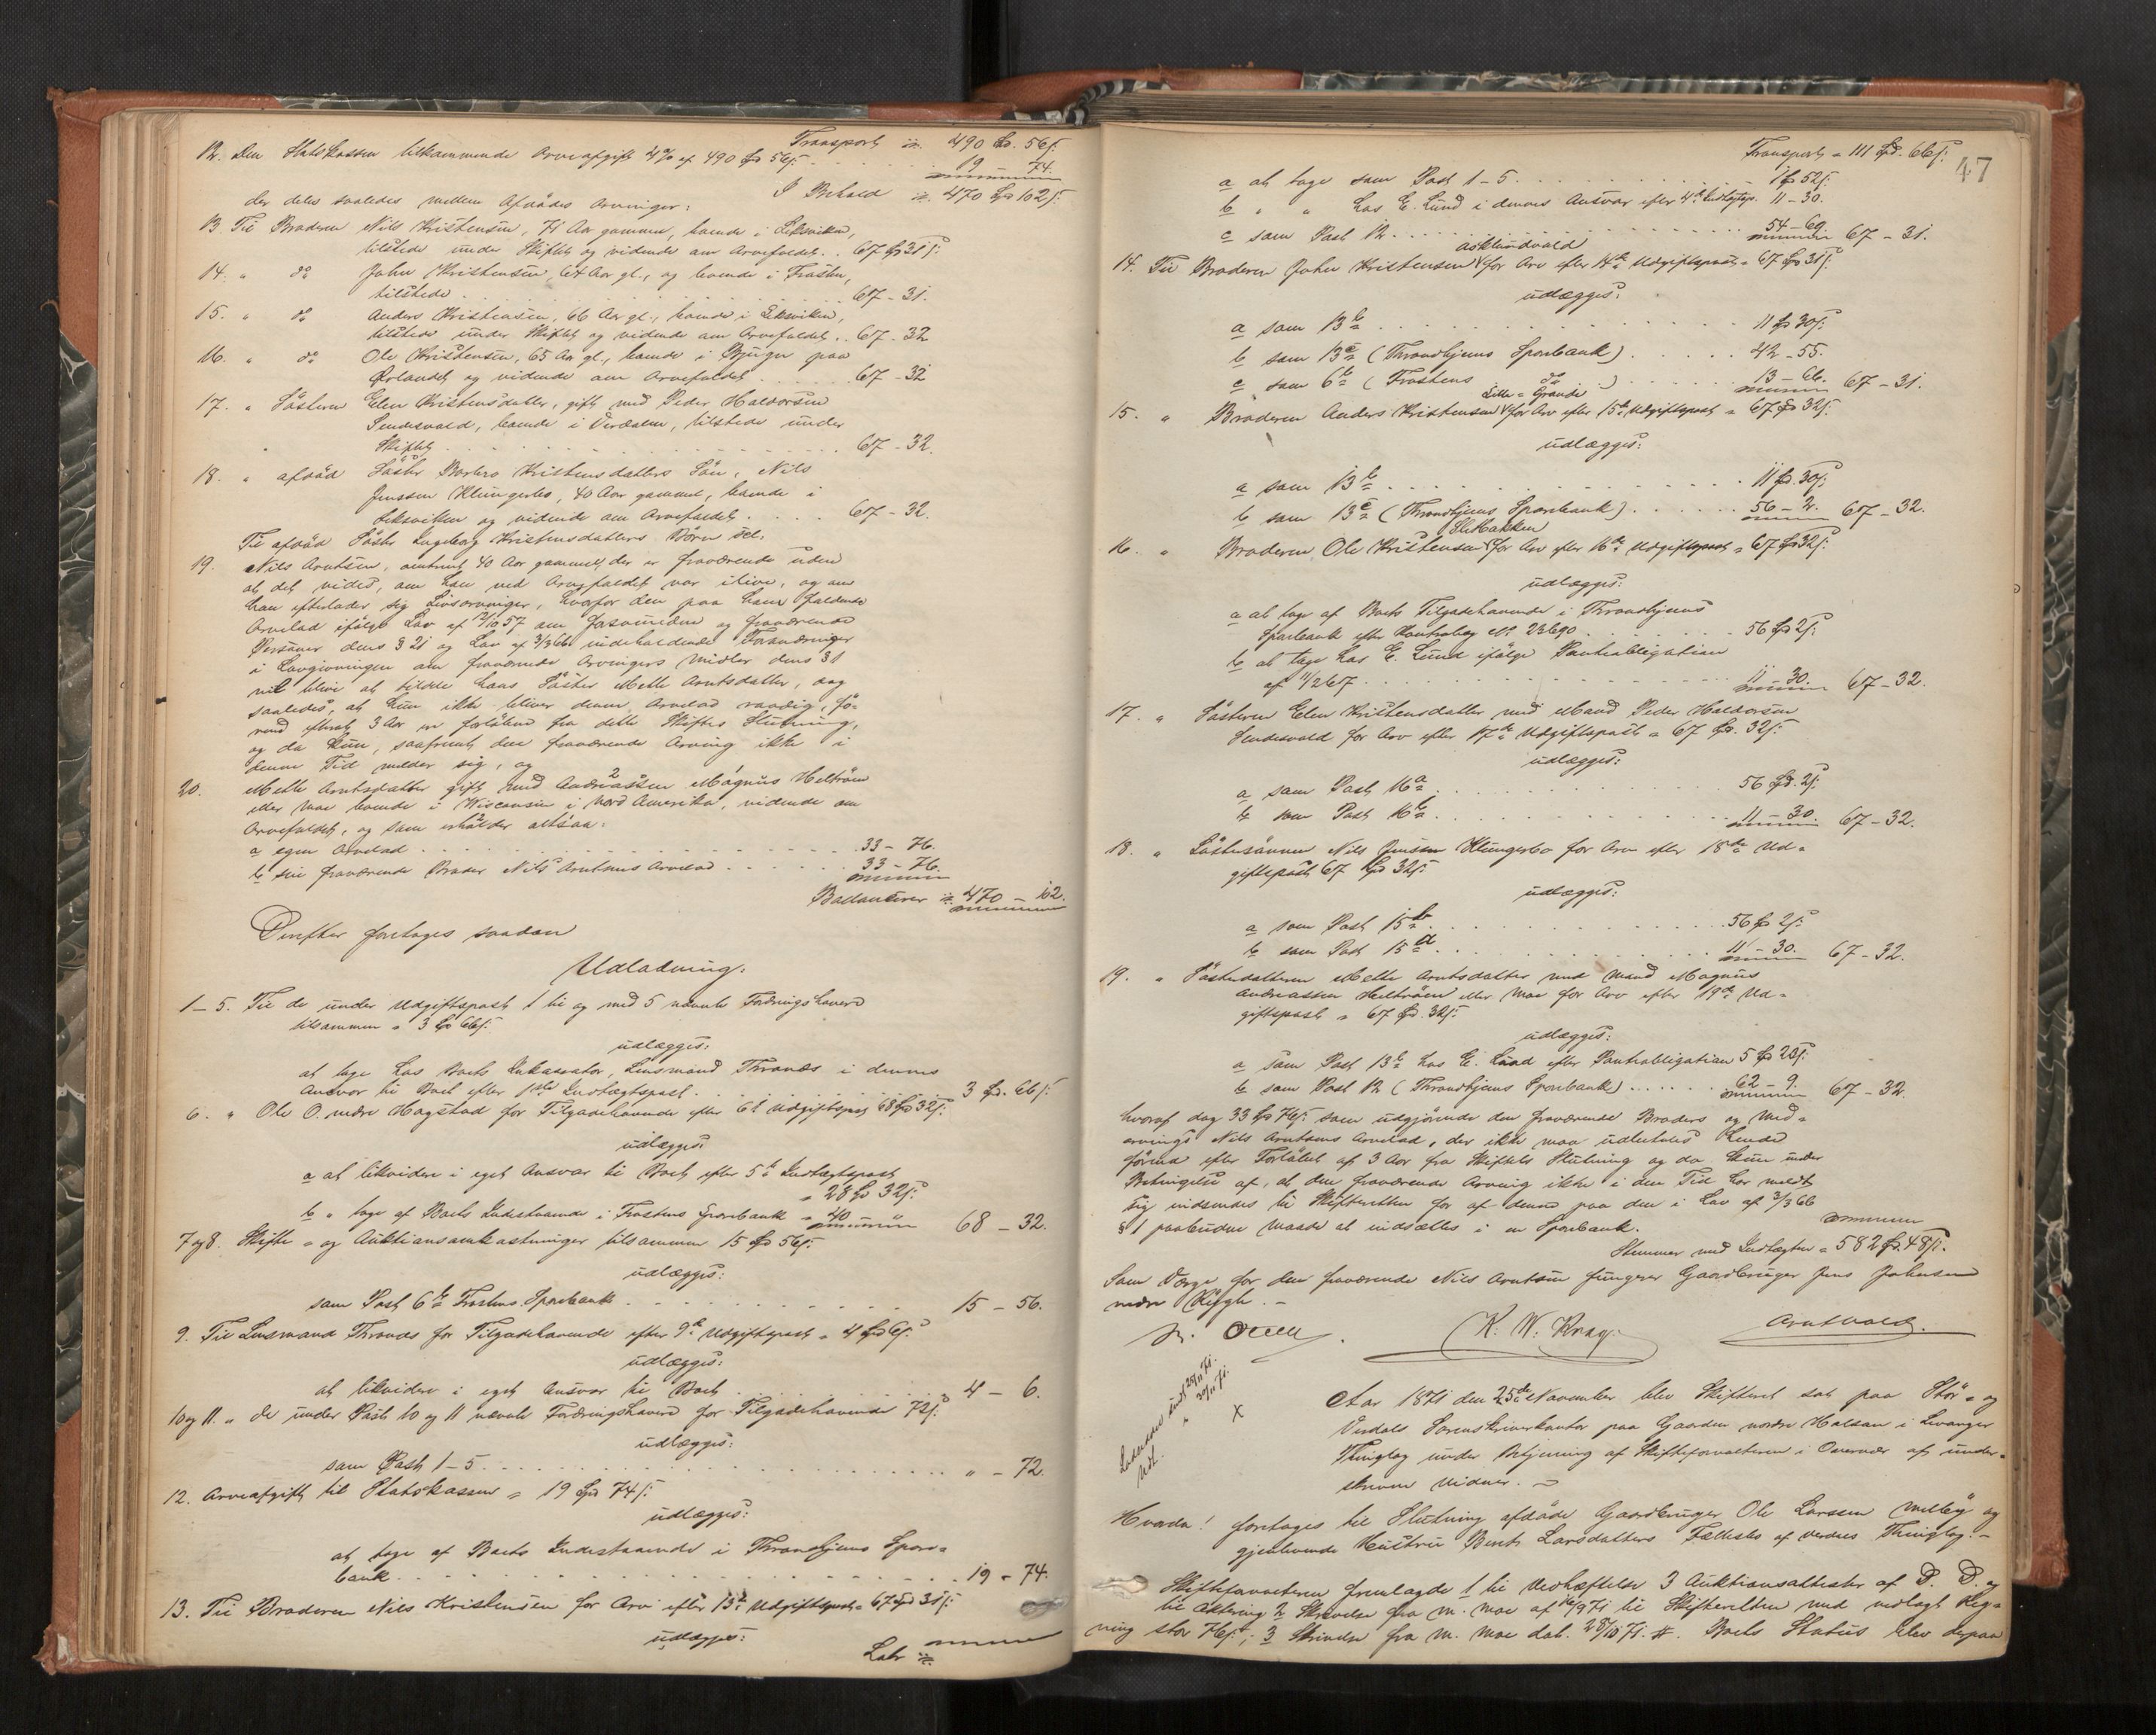 Transport 490 Spd. 56 ſ:
12. Den Statskassen tilkommende Arveafgift 4% af 490 Spd 56 ſ: 19 - 74.
I Behold 470 Spd 102 ſ:
der deles saaledes mellem Afdødes Arvinger:
13. Til Broderen Nils Kristensen, 71 Aar gammel, boende i Leksviken,
tilstede under Skiftet og vidende om Arvefaldet. 67 Spd 31 ſ:
14. " do John Kristensen, 64 Aar gl., og boende i Frosten,
tilstede 67 - 31.
15. " do Anders Kristensen, 66 Aar gl., boende i Leksviken,
tilstede under Skiftet og vidende om Arvefaldet. 67 - 32
16. " do Ole Kristensen, 65 Aar gl., boende i Bjugn paa
Ørlandet og vidende om Arvefaldet 67 - 32
17. " Søsteren Elen Kristensdatter, gift med Peder Haldorsen
Sendesvald, boende i Verdalen, tilstede under
Skiftet 67 - 32.
18. " afdød Søster Barbro Kristensdatters Søn, Nils
Jenssen Klungerbo, 40 Aar gammel, boende i
Leksviken og vidende om Arvefaldet 67 - 32.
Til afdød Søster Ingeborg Kristensdatters Børn
19. Nils Arntsen, omtrent 40 Aar gammel, der er fraværende uden
at det vides, om han ved Arvefaldet var ilive, og om
han efterlader sig Livsarvinger, hvorfor den paa ham faldende
Arvelod ifølge Lov af 12/10 57 om Forsvundne og fraværende
Personer dens § 21 og Lov af 3/3 66 indeholdende Forandringer
i Lovgivningen om fraværende Arvingers Midler dens § 1
vil blive at tildele hans Søster Mette Arntsdatter, dog
saaledes, at hun ikke bliver denne Arvelod raadig, fø-
rend efterat 3 Aar er forløbne fra dette Skiftes Slutning,
og da kun, saafremt den fraværende Arving ikke i
denne Tid melder sig, og
20. Mette Arntsdatter gift med Andreassen Magnus Heltrøen
eller Moe boende i Wisconsin i Nord Amerika, vidende om
Arvefaldet, og som erholder altsaa:
a egen Arvelod 33 - 76.
b sin fraværende Broder Nils Arntsens Arvelod 33 - 76.
Balancerer 470 - 102.
Derefter foretages saadan
Udlodning:
1-5. Til de under Udgiftspost 1 til og med 5 nævnte Fordringshavere
tilsammen " 3 Spd 66 ſ:
udlægges:
at tage hos Boets Inkassator, Lensmand Thronæs i dennes
Ansvar til Boet efter 1ste Indtægtspost 3 Spd. 66 ſ:
6. " Ole O. nedre Hagstad for Tilgodehavende efter 6te Udgiftspost 68 Spd 32 ſ:
udlægges
a at likvidere i eget Ansvar til Boet efter 5te Indtægtspost
28 Spd 32 ſ:
b " tage af Boets Indestaaende i Frostens Sparebank " 40 68 - 32.
7 og 8. Skifte- og Auktionsomkostninger tilsammen 15 Spd 56 ſ:
udlægges:
som Post 6 b Frostens Sparebank 15 - 56.
9. Til Lensmand Thronæs for Tilgodehavende efter 9de Udgiftspost = 4 Spd 6 ſ:
udlægges:
at likvidere i eget Ansvar til Boet 4 - 6.
10 og 11. " de under Post 10 og 11 nævnte Fordringshavere for Tilgodehavende 72 ſ:
udlægges:
som Post 1-5 " - 72.
12. Arveafgift til Statskassen = 19 Spd 74 ſ:
udlægges:
at tage af Boets Indestaaende i Throndhjems Spare-
bank 19 - 74.
13. Til Broderen Nils Kristensen for Arv efter 13de Udgiftspost = 67 Spd 31 ſ:
udlægges:
Lat
47
Transport = 111 Spd. 66 ſ:
a at tage som Post 1-5 1 Spd 52 ſ:
b " " hos E. Lund i dennes Ansvar efter 4de Indtægtsp. 11 - 30.
c som Post 12 54 - 69 67 - 31.
Asklundvald
14. Til Broderen John Kristensen for Arv efter 14de Udgiftspost = 67 Spd 31 ſ:
udlægges:
a som 13 b 11 Spd 30 ſ:
b som 13 c (Throndhjems Sparebank) 42 - 55.
c som 6 b (Frostens do) 13 - 66. 67 - 31.
Lille-Grande
15. " Broderen Anders Kristensen for Arv efter 15de Udgiftspost = 67 Spd 32 ſ:
udlægges:
a som 13 b 11 Spd. 30 ſ:
b som 13 c (Throndhjems Sparebank) 56 - 2. 67 - 32.
16. " Broderen Ole Kristensen for Arv efter 16de Udgiftspost = 67 Spd 32 ſ:
udlægges:
a at tage af Boets Tilgodehavende i Throndhjems
Sparebank efter Kontrabog No 23690 56 Spd 2 ſ:
b at tage hos E. Lund ifølge Pantobligation
af 11/2 67 11 - 30. 67 - 32.
17. " Søsteren Elen Kristensdatter med Mand Peder Haldorsen
Sendesvald for Arv efter 17de Udgiftspost = 67 Spd. 32 ſ:
udlægges:
a som Post 16 a 56 Spd. 2 ſ:
b som Post 16 b 11 - 30. 67 - 32.
18. " Søstersønnen Nils Jensen Klungerbo for Arv efter 18de Ud-
giftspost 67 Spd 32 ſ:
udlægges:
a som Post 15 b 56 Spd 2 ſ:
b som Post 15 a 11 - 30. 67 - 32.
19. " Søsterdatteren Mette Arntsdatter med Mand Magnus
Andreassen Heltrøen eller Moe for Arv efter 19de Ud-
giftspost = 67 Spd. 32 ſ:
udlægges:
a som Post 13 b hos E. Lund efter Pantobligation 5 Spd 23 ſ:
b som Post 12 (Throndhjems Sparebank) 62 - 9. 67 - 32.
hvoraf dog 33 Spd 76 ſ: som udgjørende den fraværende Broders og Med-
arvings Nils Arntsens Arvelod, der ikke maa udbetales hende
førend efter Forløbet af 3 Aar fra Skiftets Slutning og da kun under
Betingelse af, at den fraværende Arving ikke i den Tid har meldt
sig indsendes til Skifteretten for af denne paa den i Lov af 3/3 66
§ 1 paabudne Maade at indsættes i en Sparebank.
Stemmer med Indtægten = 582 Spd. 48 ſ:
Som Værge for den fraværende Nils Arntsen fungerer Gaardbruger Jens Johnsen
nedre
K. W. Krag. Arntvold.
25/11 71.
30/11 71.
X
Aar 1871 den 25de November blev Skifteret sat paa Stør- og
Verdals Sorenskriverkontor paa Gaarden nordre Halsan i Levanger
Thinglag under Betjening af Skifteforvalteren i Overvær af under-
skrevne Vidner. -
Hvorda! foretages til Slutning afdøde Gaardbruger Ole Larssen Melby og
gjenlevende Hustru Berit Larsdatters Fællesbo af Verdes Thinglag. -
Skifteforvalteren fremlagde 1 til Vedhæftelse 3 Auktionsattester af D. D. og
til Aktering 2 Skrivelse fra M. Moe af 16/9 71 til Skifteretten med vedlagt Reg-
ning stor 76 ſ:; 3 Skrivelse fra M. Moe dat. 28/10 71. #. Boets Status blev derpaa